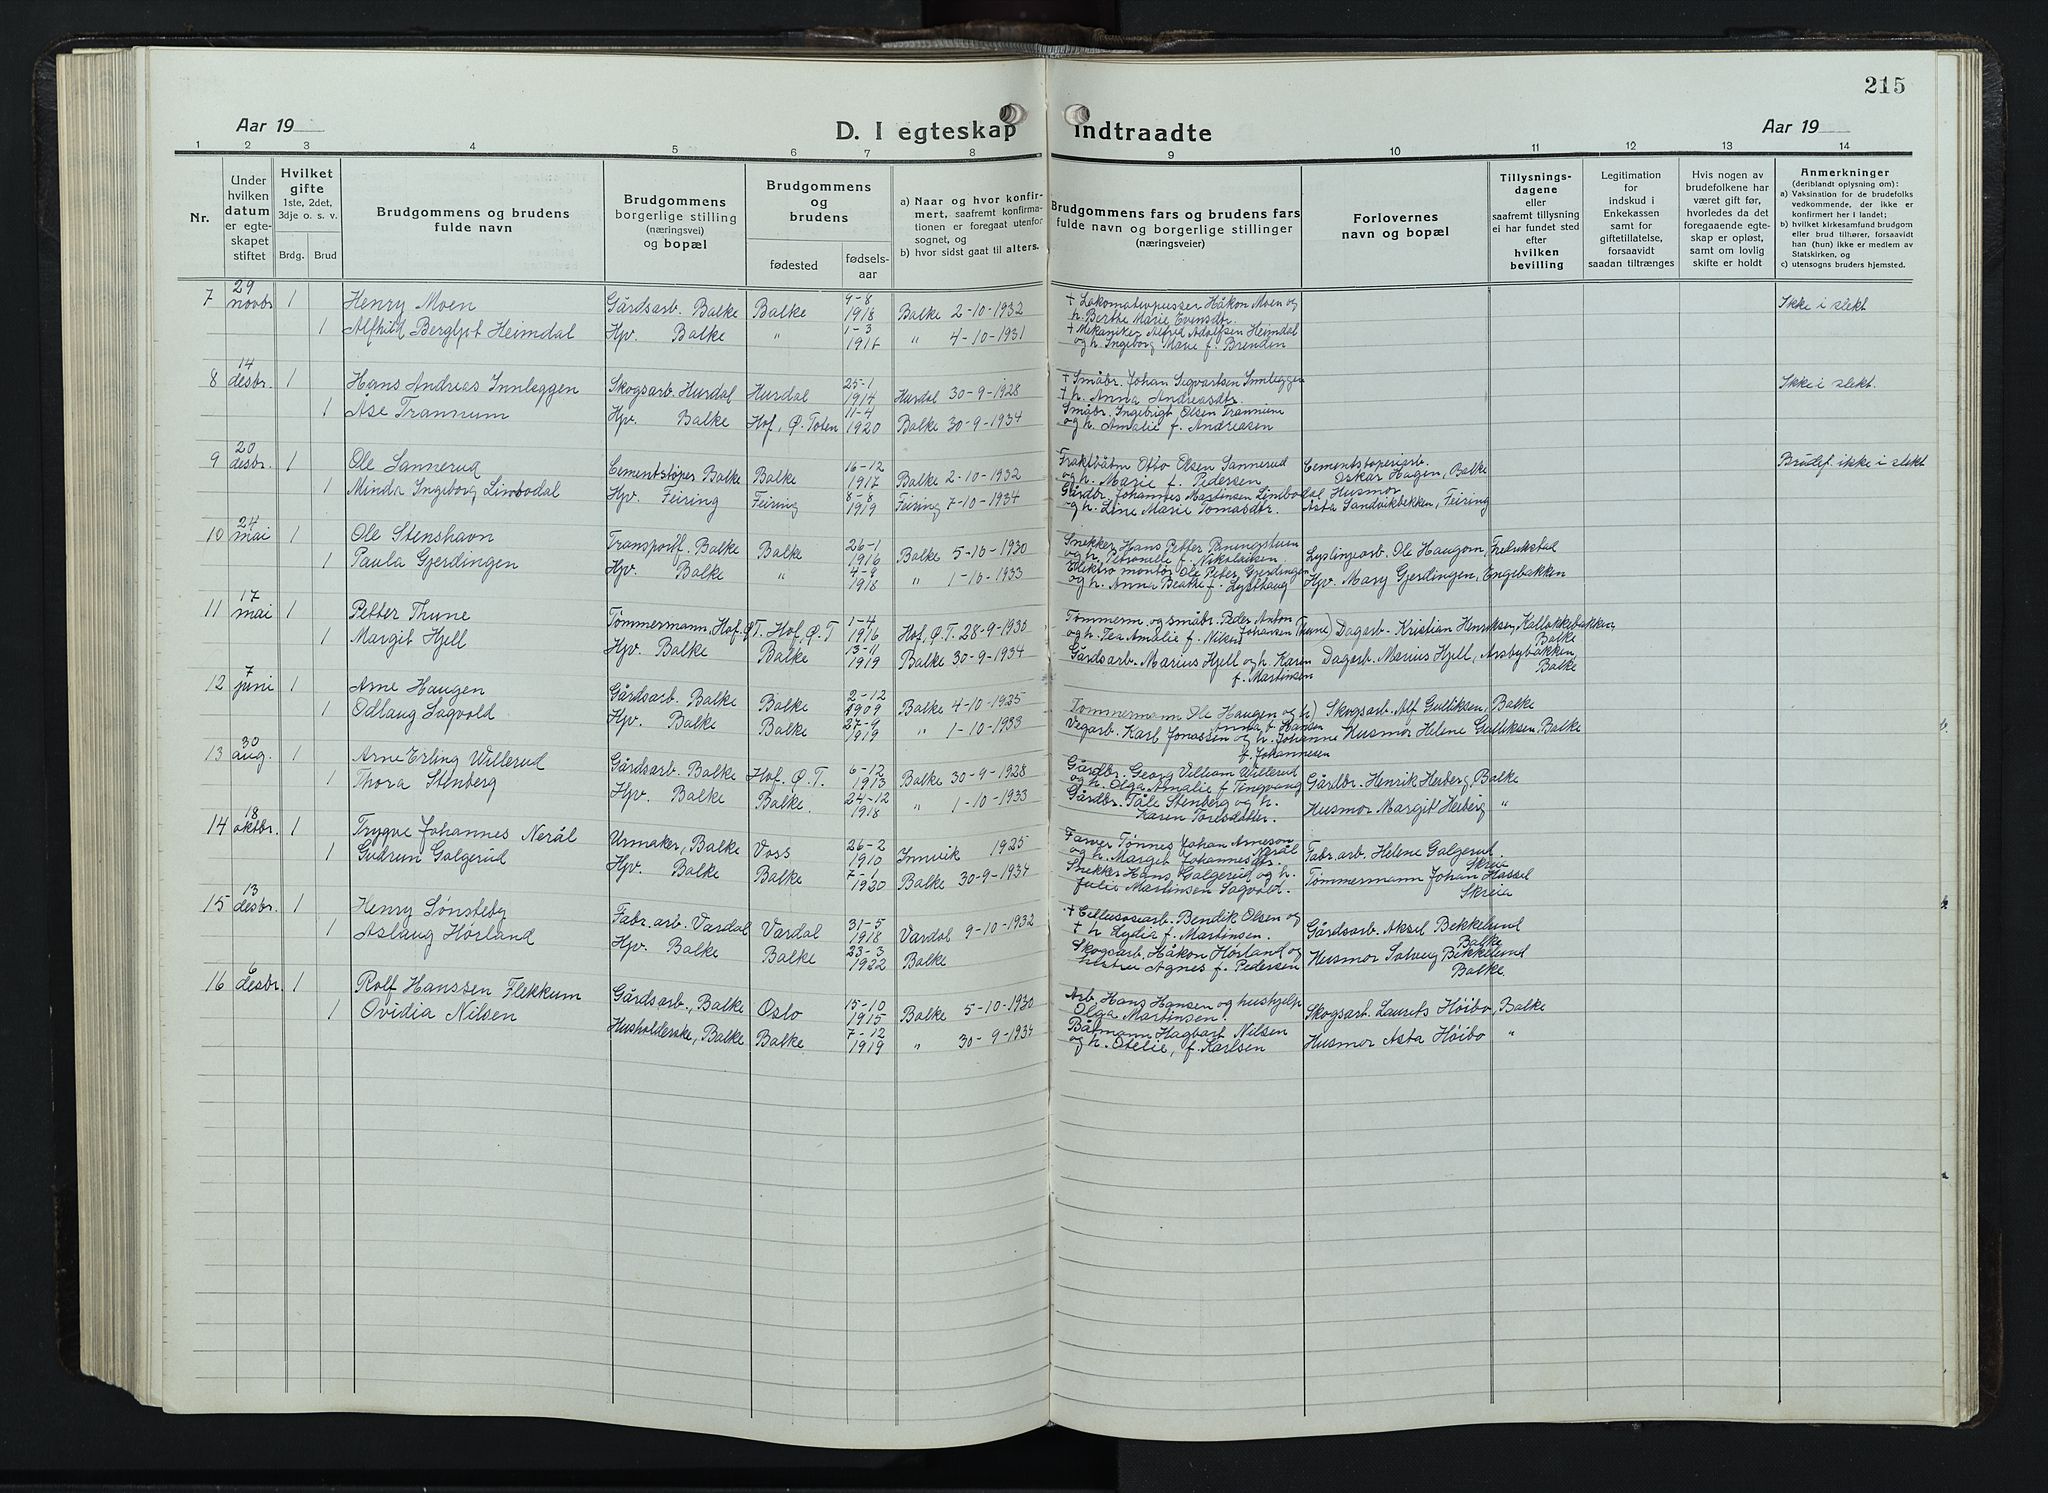 215
Aar 19
D. I egteskap indtraadte
Aar 19
1 2 3 4 5 6 7 8 9 10 11 12 13 14
Nr.
Under hvilken datum er egteskapet stiftet
Hvilket gifte 1ste, 2det, 3dje o. s. v.
Brdg. Brud
Brudgommens og brudens fulde navn
Brudgommens borgerlige stilling (næringsvei) og bopæl
Brudgommens og brudens
fødested
fødsels-aar
a) Naar og hvor konfirmert, saafremt konfirmationen er foregaat utenfor sognet, og
b) hvor sidst gaat til alters.
Brudgommens fars og brudens fars fulde navn og borgerlige stillinger (næringsveier)
Forlovernes navn og bopæl
Tillysningsdagene eller saafremt tillysning ei har fundet sted efter hvilken bevilling
Legitimation for indskud i Enkekassen samt for giftetillatelse, forsaavidt saadan tiltrænges
Hvis nogen av brudefolkene har været gift før, hvorledes da det foregaaende egteskap er opløst, samt om lovlig skifte er holdt
Anmerkninger
(deriblandt oplysning om):
a) Vaksination for de brudefolks vedkommende, der ikke er konfirmert her i landet;
b) hvilket kirkesamfund brudgom eller brud tilhører, forsaavidt han (hun) ikke er medlem av Statskirken, og
c) utensogns bruders hjemsted.
7 29 novbr 1 Henry Moen Gårdsarb. Balke Balke 9-8 1918 Balke 2-10-1932 † Lokomativpusser Håkon Moen og h. Berthe Marie Evensdtr. Ikke i slekt
1 Alfhild Bergljot Heimdal Hjv. Balke " 1-3 1916 " 4-10-1931 † Mekaniker Alfred Adolfsen Heimdal og h. Ingeborg Marie f. Brenden
8 14 desbr. 1 Hans Andreas Innleggen Skogsarb. Hurdal Hurdal 25-1 1914 Hurdal 30-9-1928 † Småbr. Johan Sigvartsen Innleggen † h. Anna Andreasdtr. Ikke i slekt.
1 Åse Trannum Hjv. Balke Hof, Ø. Toten 11-4 1920 Balke 30-9-1934 Småbr. Ingebrigt Olsen Trannum og h. Amalie f. Andreasen
9 20 desbr. 1 Ole Sannerud Cementstøper Balke Balke 16-12 1917 Balke 2-10-1932 Fraktbåtm Otto Olsen Sannerud og h. Marie f. Pedersen Cementstøperiarb. Oskar Hagen, Balke Brudef. ikke i slekt
1 Minda Ingeborg Limbodal Hjv. Feiring Feiring 8-8 1919 Feiring 7-10-1934 Gårdbr. Johannes Martinsen Limbodal og h. Line Marie Tomasdtr. Husmor Asta Sandvikbekken, Feiring
10 24 mai 1 Ole Stenshavn Transportf. Balke Balke 26-1 1916 Balke 5-10-1930 Snekker Hans Petter og h. Petronelle f. Nikolaisen Ole Haugom, Fredrikstad
1 Paula Gjerdingen Hjv. Balke " 4-9 1918 " 1-10-1933 Elektro montør Ole Peter Gjerdingen og h. Anna Beate f. Lysthaug Hjv. Mary Gjerdingen, Engebakken
11 17 mai 1 Petter Thune Tømmermann, Hof. Ø.T. Hof, Ø.T 1-4 1916 Hof, Ø.T. 28-9-1930 Tømmerm. og småbr. Peder Anton Johansen (Thune) og h. Tea Amalie f. Nilsen Dagarb. Kristian Henriksen, Kallakkebakken, Balke
1 Margit Hjell Hjv. Balke Balke 13-11 1919 Balke 30-9-1934 Gårdsarb. Marius Hjell og h. Karen f. Martinsen Dagarb. Marius Hjell, Balke
12 7 juni 1 Arne Haugen Gårdsarb. Balke Balke 2-12 1909 Balke 4-10-1925 Tømmermann Ole Haugen og h. Anna f. Hansen Skogsarb. Alf Gulliksen, Balke
1 Odlaug Sagvold Hjv. Balke Balke 27-9 1919 " 1-10-1933 Vegarb. Karl Jonassen og h. Johanne f. Johannesen Husmor Helene Gulliksen, Balke
13 30 aug. 1 Arne Erling Willerud Gårdsarb. Balke Hof. Ø.T. 6-12 1913 Balke 30-9-1928 Gårdbr. Georg Villiam Willerud og h. Olga Amalie f Tengvang Gårdbr. Henrik Herberg, Balke
1 Thora Stenberg Hjv. Balke Balke 24-12 1918 " 1-10-1933 Gårdbr. Tåle Stenberg og h. Karen Torlsdtter. Husmor Margit Herberg "
14 18 oktbr. 1 Trygve Johannes Nerål Urmaker, Balke Voss 26-2 1910 Innvik 1925 Farver Tønnes Johan Arneson Nerål og h. Margit Johannesdtr. Fabr.arb. Helene Galgerud, Skreia
1 Gudrun Galgerud Hjv. Balke Balke 7-1 1920 Balke 30-9-1934 Snekker Hans Galgerud og h. Julie Martinsen Sagvold. Tømmermann Johan Hassel Skreia
15 13 desbr. 1 Henry Sønsteby Fabr.arb. Vardal Vardal 31-5 1918 Vardal 9-10-1932 † Cellusosearb. Bendik Olsen og † h Lydia f. Martinsen. Gårdsarb. Aksel Bekkelund Balke
1 Aslaug Hørland Hjv. Balke Balke 23-3 1922 Balke Skogsarb. Håkon Hørland og hustru Agnes f. Pedersen Husmor Solveig Bekkelund Balke
16 6 desbr. 1 Rolf Hanssen Flekkum Gårdsarb., Balke Oslo 15-10 1915 Balke 5-10-1930 Arb. Hans Hansen og hushjelp Olga Martinsen. Skogsarb. Laurits Høibo, Balke
1 Ovidia Nilsen Husholderske, Balke Balke 7-12 1919 " 30-9-1934 Båtmann Hagbart Nilsen og h. Otelie, f. Karlsen Husmor Asta Høibo "